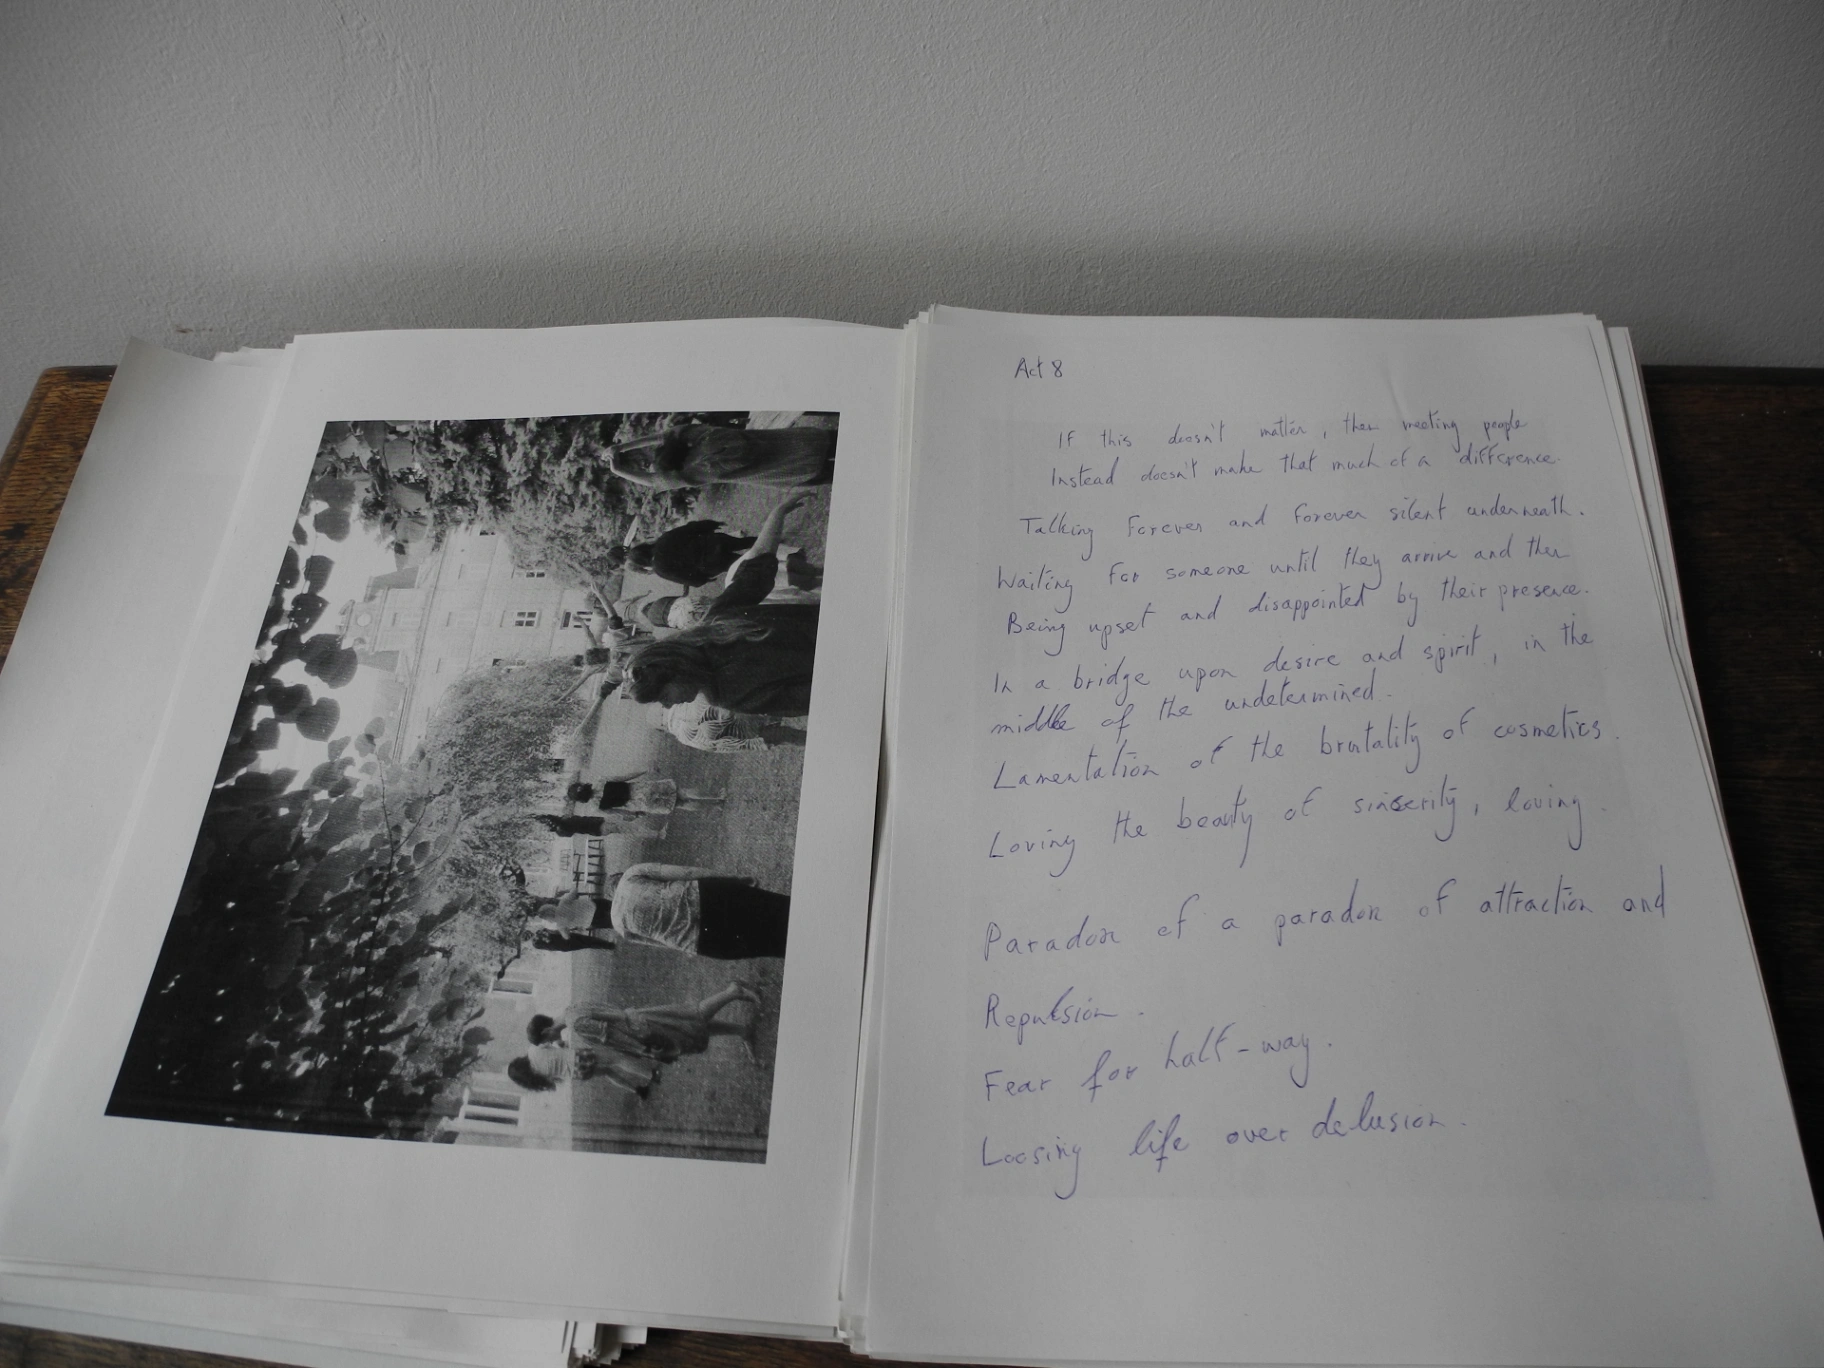 Act 8
If this doesn't matter, then meeting people
Instead doesn't make that much of a difference.
Talking forever and forever silent underneath.
Waiting for someone until they arrive and then
Being upset and disappointed by their presence.
In a bridge upon desire and spirit, in the
middle of the undetermined.
Lamentation of the brutality of cosmetics.
Loving the beauty of sincerity, loving.
Paradox of a paradox of attraction and
Repulsion.
Fear for half-way.
Loosing life over delusion.